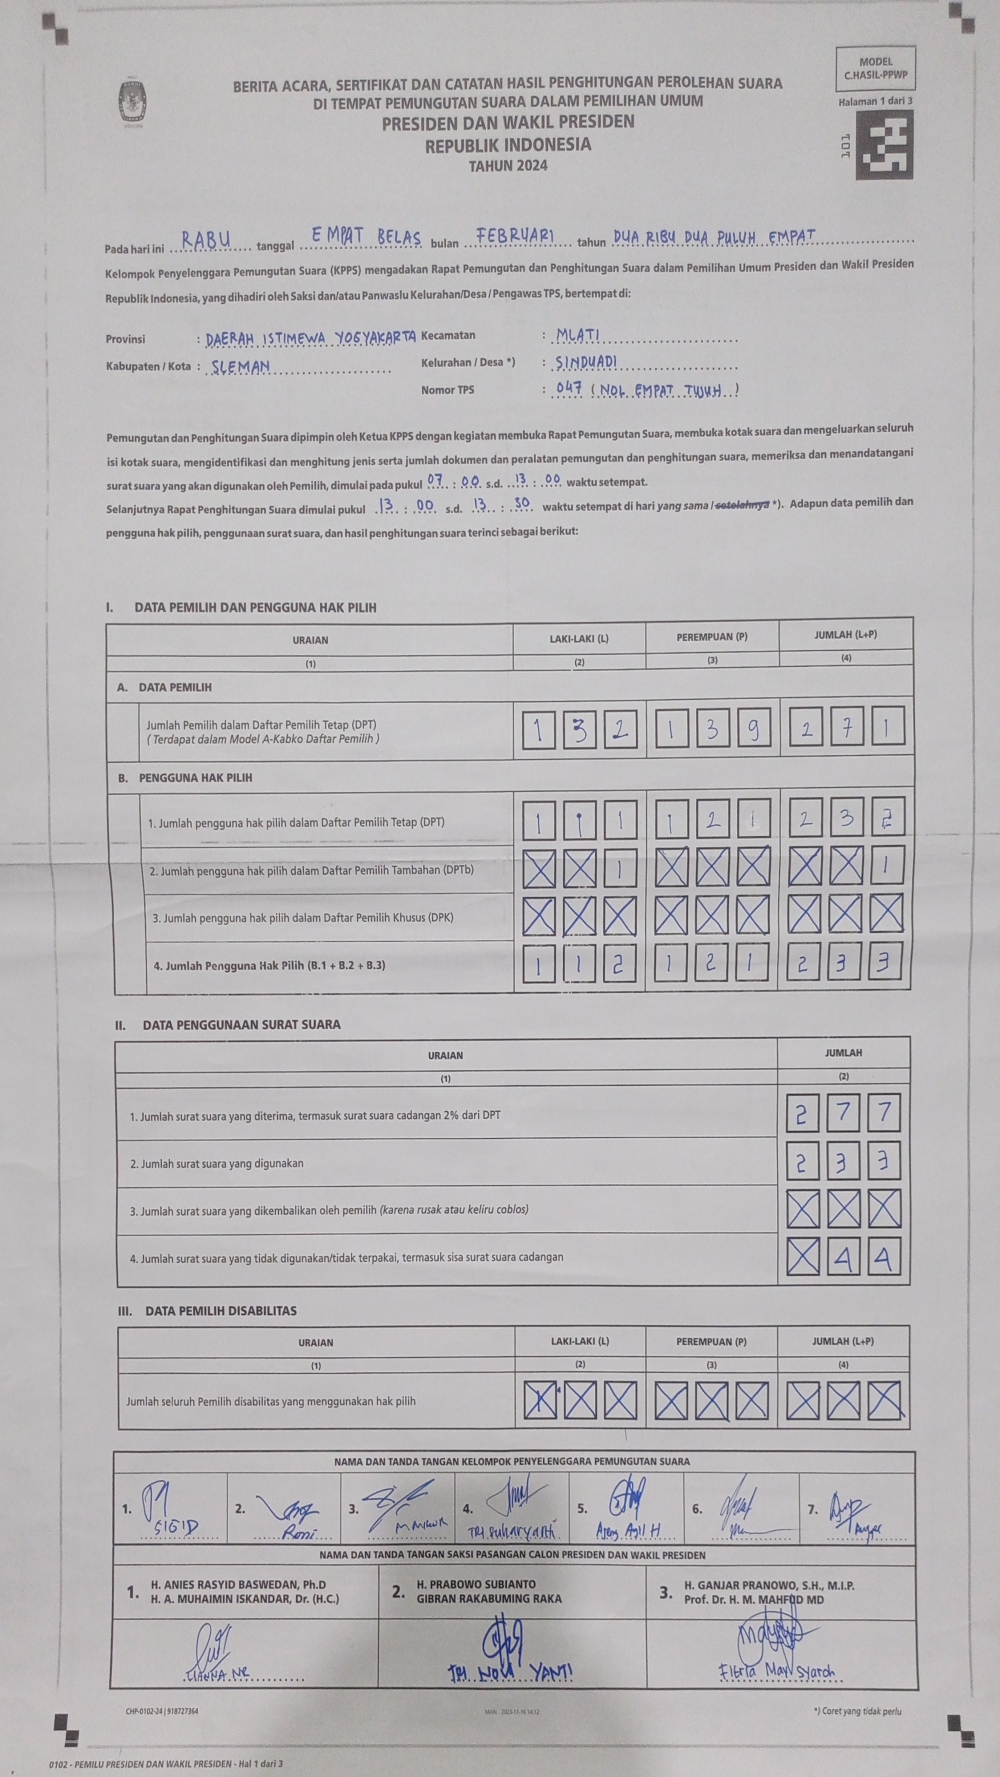 MODEL
C.HASIL-PPWP
Halaman 1 dari 3
101
BERITA ACARA, SERTIFIKAT DAN CATATAN HASIL PENGHITUNGAN PEROLEHAN SUARA
DI TEMPAT PEMUNGUTAN SUARA DALAM PEMILIHAN UMUM
PRESIDEN DAN WAKIL PRESIDEN
REPUBLIK INDONESIA
TAHUN 2024
Pada hari ini RABU tanggal EMPAT BELAS bulan FEBRUARI tahun DUA RIBU DUA PULUH EMPAT
Kelompok Penyelenggara Pemungutan Suara (KPPS) mengadakan Rapat Pemungutan dan Penghitungan Suara dalam Pemilihan Umum Presiden dan Wakil Presiden
Republik Indonesia, yang dihadiri oleh Saksi dan/atau Panwaslu Kelurahan/Desa / Pengawas TPS, bertempat di:
Provinsi : DAERAH ISTIMEWA YOGYAKARTA Kecamatan : MLATI
Kabupaten / Kota : SLEMAN Kelurahan / Desa *) : SINDUADI
Nomor TPS : 047 (NOL EMPAT TUJUH)
Pemungutan dan Penghitungan Suara dipimpin oleh Ketua KPPS dengan kegiatan membuka Rapat Pemungutan Suara, membuka kotak suara dan mengeluarkan seluruh
isi kotak suara, mengidentifikasi dan menghitung jenis serta jumlah dokumen dan peralatan pemungutan dan penghitungan suara, memeriksa dan menandatangani
surat suara yang akan digunakan oleh Pemilih, dimulai pada pukul 07 : 00 s.d. 13 : 00 waktu setempat.
Selanjutnya Rapat Penghitungan Suara dimulai pukul 13 : 00 s.d. 13 : 30 waktu setempat di hari yang sama / setelahnya *). Adapun data pemilih dan
pengguna hak pilih, penggunaan surat suara, dan hasil penghitungan suara terinci sebagai berikut:
I. DATA PEMILIH DAN PENGGUNA HAK PILIH
URAIAN LAKI-LAKI (L) PEREMPUAN (P) JUMLAH (L+P)
(1) (2) (3) (4)
A. DATA PEMILIH
Jumlah Pemilih dalam Daftar Pemilih Tetap (DPT)
(Terdapat dalam Model A-Kabko Daftar Pemilih) 1 3 2 1 3 9 2 7 1
B. PENGGUNA HAK PILIH
1. Jumlah pengguna hak pilih dalam Daftar Pemilih Tetap (DPT) 1 1 1 1 2 1 2 3 2
2. Jumlah pengguna hak pilih dalam Daftar Pemilih Tambahan (DPTb) X X 1 X X X X X 1
3. Jumlah pengguna hak pilih dalam Daftar Pemilih Khusus (DPK) X X X X X X X X X
4. Jumlah Pengguna Hak Pilih (B.1 + B.2 + B.3) 1 1 2 1 2 1 2 3 3
II. DATA PENGGUNAAN SURAT SUARA
URAIAN JUMLAH
(1) (2)
1. Jumlah surat suara yang diterima, termasuk surat suara cadangan 2% dari DPT 2 7 7
2. Jumlah surat suara yang digunakan 2 3 3
3. Jumlah surat suara yang dikembalikan oleh pemilih (karena rusak atau keliru coblos) X X X
4. Jumlah surat suara yang tidak digunakan/tidak terpakai, termasuk sisa surat suara cadangan X 4 4
III. DATA PEMILIH DISABILITAS
URAIAN LAKI-LAKI (L) PEREMPUAN (P) JUMLAH (L+P)
(1) (2) (3) (4)
Jumlah seluruh Pemilih disabilitas yang menggunakan hak pilih X X X X X X X X X
NAMA DAN TANDA TANGAN KELOMPOK PENYELENGGARA PEMUNGUTAN SUARA
1. 2. 3. 4. 5. 6. 7.
SIGID Romi TRI Suharyanti
NAMA DAN TANDA TANGAN SAKSI PASANGAN CALON PRESIDEN DAN WAKIL PRESIDEN
1. H. ANIES RASYID BASWEDAN, Ph.D
H. A. MUHAIMIN ISKANDAR, Dr. (H.C.)
2. H. PRABOWO SUBIANTO
GIBRAN RAKABUMING RAKA
3. H. GANJAR PRANOWO, S.H., M.I.P.
Prof. Dr. H. M. MAHFUD MD
TRI NOVI YANTI Fitria May Syaroh
CHP-0102-24 | 918727364
*) Coret yang tidak perlu
0102 - PEMILU PRESIDEN DAN WAKIL PRESIDEN - Hal 1 dari 3